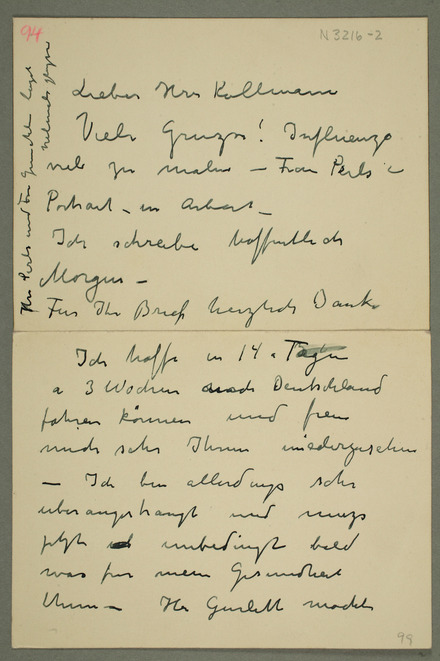 94
N 3216-2
Lieber Herr Kollmann
Viele Grüze! Influenza
viel zu malen – Frau Perls
Portrait – in Arbeit –
Ich schreibe hoffentlich
Morgen –
Für Ihr Brief herzlich Danke
Herr Perls und
Ich hoffe in 14 a Tagen
a 3 Wochen nach Deutschland
fahren können und freue
mich sehr Ihnen wiederzusehen
– Ich bin allerdings sehr
überangestrangt und muzs
jetzt unbedingt bald
was für mein Gesundheit
thun – Herr Gurlitt möchte
99